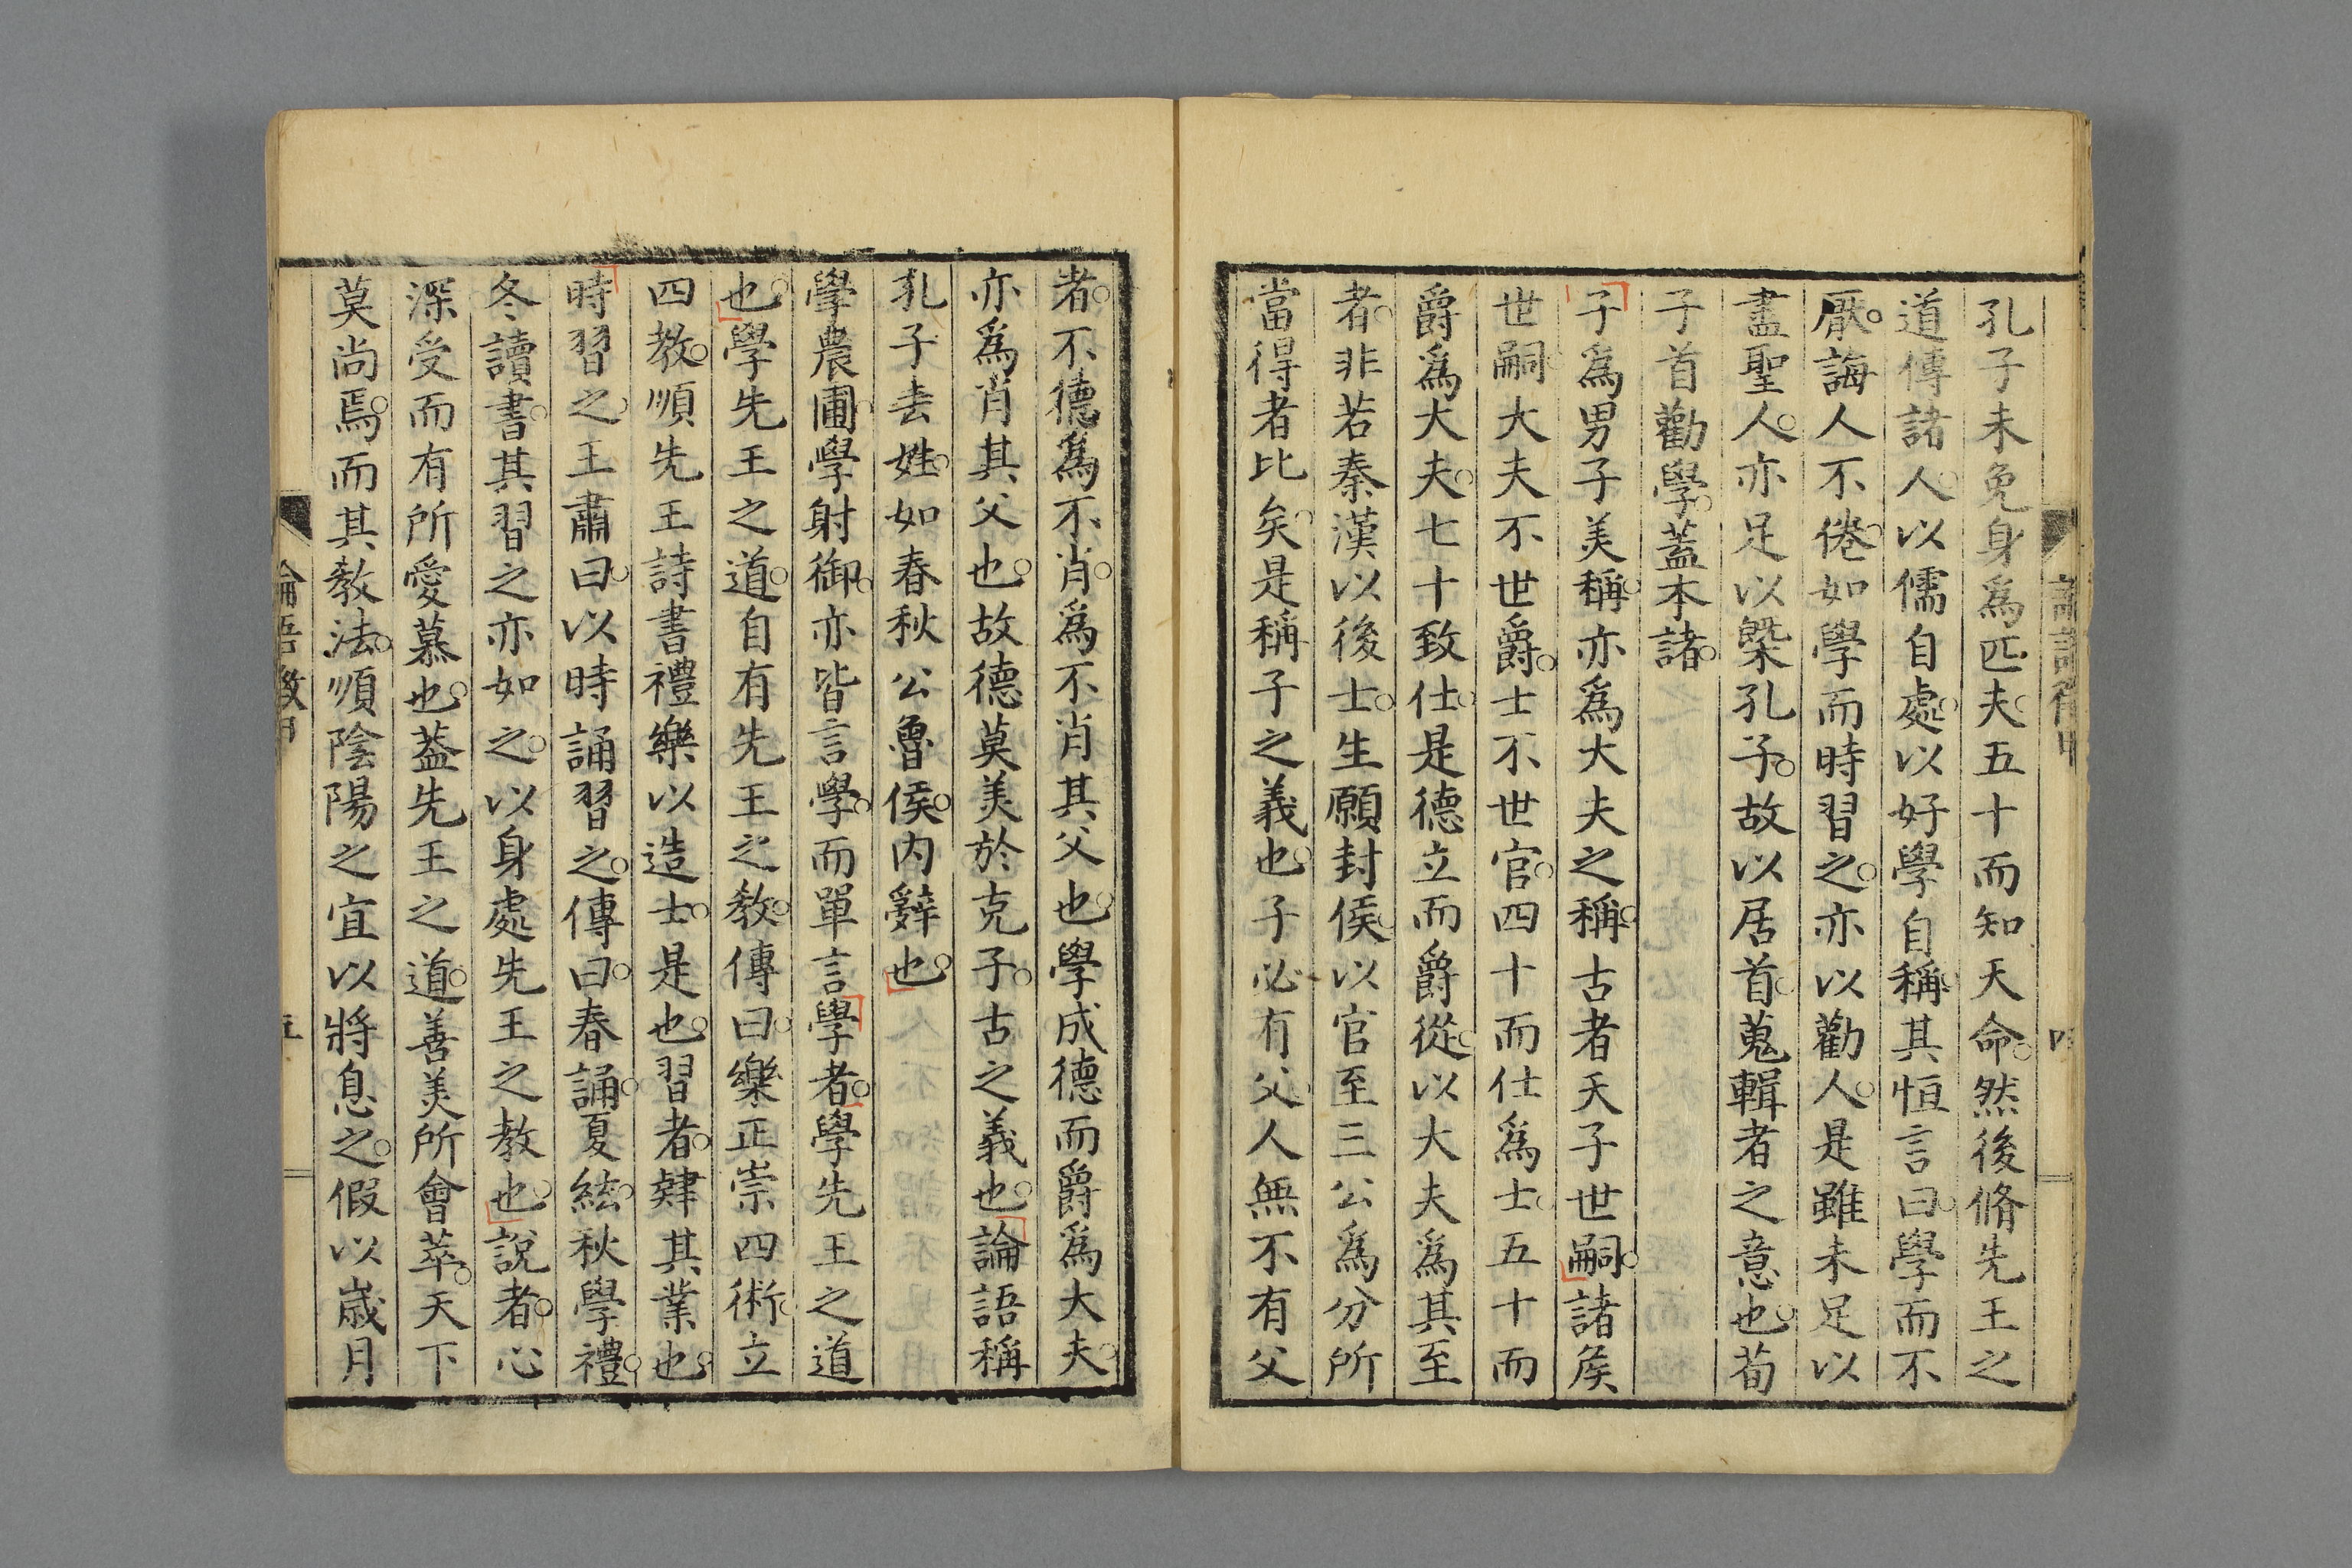 孔子未免身爲匹夫五十而知天命然後脩先王之
道傳諸人以儒自處以好學自稱其恒言曰學而不
厭誨人不倦如學而時習之亦以勸人是雖未足以
盡聖人亦足以槩孔子故以居首蒐輯者之意也荀
子首勸學蓋本諸
子爲男子美稱亦爲大夫之稱古者天子世嗣諸矦
世嗣大夫不世爵士不世官四十而仕爲士五十而
爵爲大夫七十致仕是德立而爵從以大夫爲其至
者非若秦漢以後士生願封侯以官至三公爲分所
當得者比矣是稱子之義也子必有父人無不有父
者不德爲不肖爲不肖其父也學成德而爵爲大夫
亦爲肖其父也故德莫美於克子古之義也論語稱
孔子去姓如春秋公魯侯內辭也
學農圃學射御亦皆言學而單言學者學先王之道
也學先王之道自有先王之教傳曰樂正崇四術立
四教順先王詩書禮樂以造士是也習者肄其業也
時習之王肅曰以時誦習之傳曰春誦夏絃秋學禮
冬讀書其習之亦如之以身處先王之教也說者心
深受而有所愛慕也蓋先王之道善美所會萃天下
莫尚焉而其教法順陰陽之宜以將息之假以歲月
論語徵甲
五